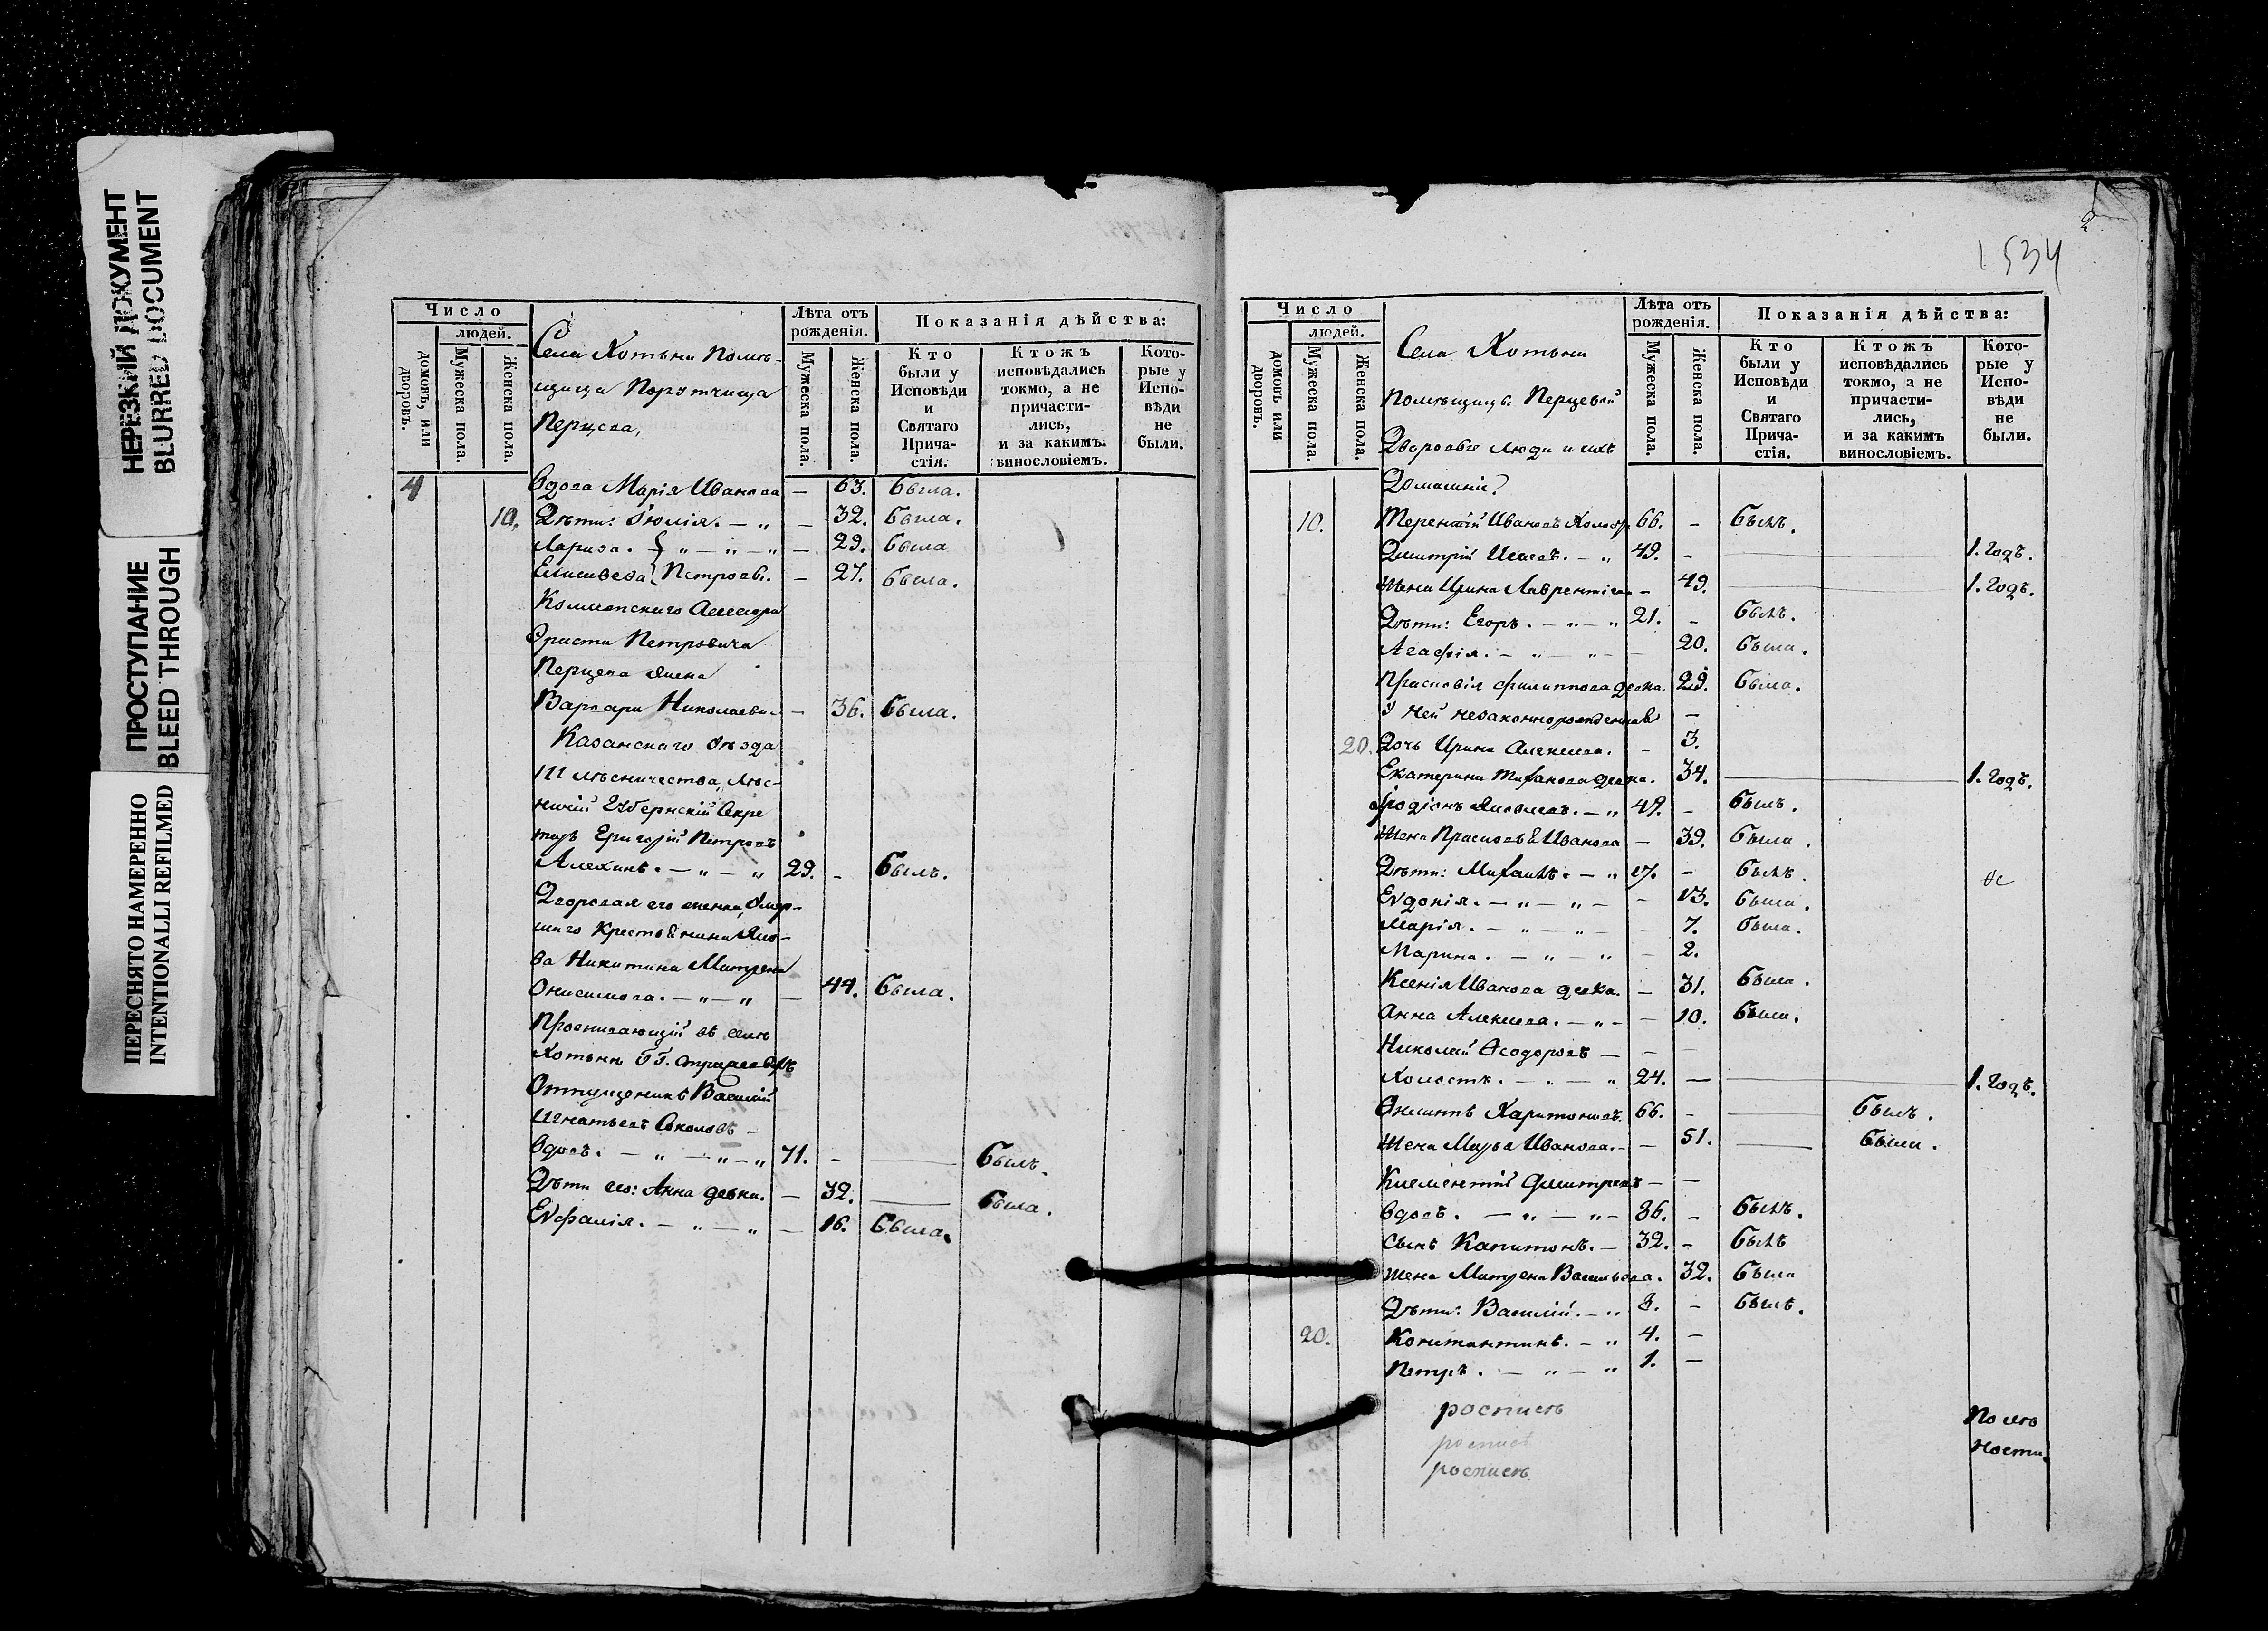 НЕРЕЗКИЙ ДОКУМЕНТ
BLURRED DOCUMENT
ПРОСТУПАНИЕ
BLEED THROUGH
ПЕРЕСНЯТО НАМЕРЕННО
INTENTIONALLI REFILMED
Число
людей.
домовъ, или дворовъ.
Мужеска пола.
Женска пола.
Села Хотьни Помѣ-
щица Порутчица
Перцова,
Лѣта отъ рожденія.
Мужеска пола.
Женска пола.
Показанія дѣйства:
Кто были у Исповѣди и Святаго Прича-стія.
Ктожъ исповѣдались токмо, а не причасти-лись, и за какимъ винословіемъ.
Кото-рые у Испо-вѣди не были.
4 Вдова Марія Иванова — 63. была.
10. Дѣти: Юлія. — „ — 32. была.
Лариса. „ — „ — „ — 29. была
Елисавета Петровы. — 27. была.
Коллежскаго Ассесора
Петровича
Перцова жена
Варвара Николаева — 36. была.
Казанскаго Уѣзда
III лѣсничества, Лѣс-
ничій Губернскій Секре
тарь Григорій Петровъ
Алехинъ. — „ — „ 29. - былъ.
Дворовая его женка, Умер-
шаго Крестьянина
ва Никитина Матрена
Онисимова. — „ — „ — 44. была.
Проживающій въ селѣ
Хотьни
Отпущеникъ Василій
Игнатьевъ Соколовъ —
вдовъ. — „ — „ — „ 71. - — былъ.
Дѣти его: Анна девка. — 32. — была.
Евфалія. — „ — „ — 16. была.
1534
2
Число
людей.
домовъ или дворовъ.
Мужеска пола.
Женска пола.
Села Хотьни
Помѣщицы Перцевой
Дворовые люди и ихъ
Домашніе
Лѣта отъ рожденія.
Мужеска пола.
Женска пола.
Показанія дѣйства:
Кто были у Исповѣди и Святаго Прича-стія.
Ктожъ исповѣдались токмо, а не причасти-лись, и за какимъ винословіемъ.
Кото-рые у Испо-вѣди не были.
10. Терентій Ивановъ Холост. 66. - былъ.
Дмитрій Исаевъ. — „ 49. - — 1. годъ.
Жена Ирина Лаврентіева - 49. — 1. годъ.
Дѣти: Егоръ. — „ — „ 21. - былъ.
Агафія. — „ — „ — 20. была.
Прасковія Филиппова девка. 29. была.
У ней незаконнорожденная —
20. Дочь Ирина Алексеева. - 3.
Екатерина девка. 34. — 1. годъ.
Родіонъ Яковлевъ. — „ 49. - былъ.
Жена Прасковья Иванова — 39. была.
Дѣти: Михаилъ. — „ 17. - былъ.
Евдокія. — „ — „ — - 13. была.
Марія. — „ — „ — - 7. была.
Марина. — „ — „ - 2.
Ксенія Иванова девка. — 31. была.
Анна Алексеева. — „ — - 10. была.
Николай Ѳеодоровъ — - —
Холостъ. — „ — „ 24. — — 1. годъ.
Харитоновъ. 66. - — былъ.
Жена Марья Иванова. — — 51. — была.
Климентій Дмитревъ — —
вдовъ. — „ — „ - 86. - былъ.
сынъ Капитонъ. — 32. - былъ
жена Матрена Васильева. 32. была
Дѣти: Василій. — „ 8. - былъ.
20. Константинъ. — „ 4. —
Петръ. — „ — „ 1. —
роспись
роспись
роспись